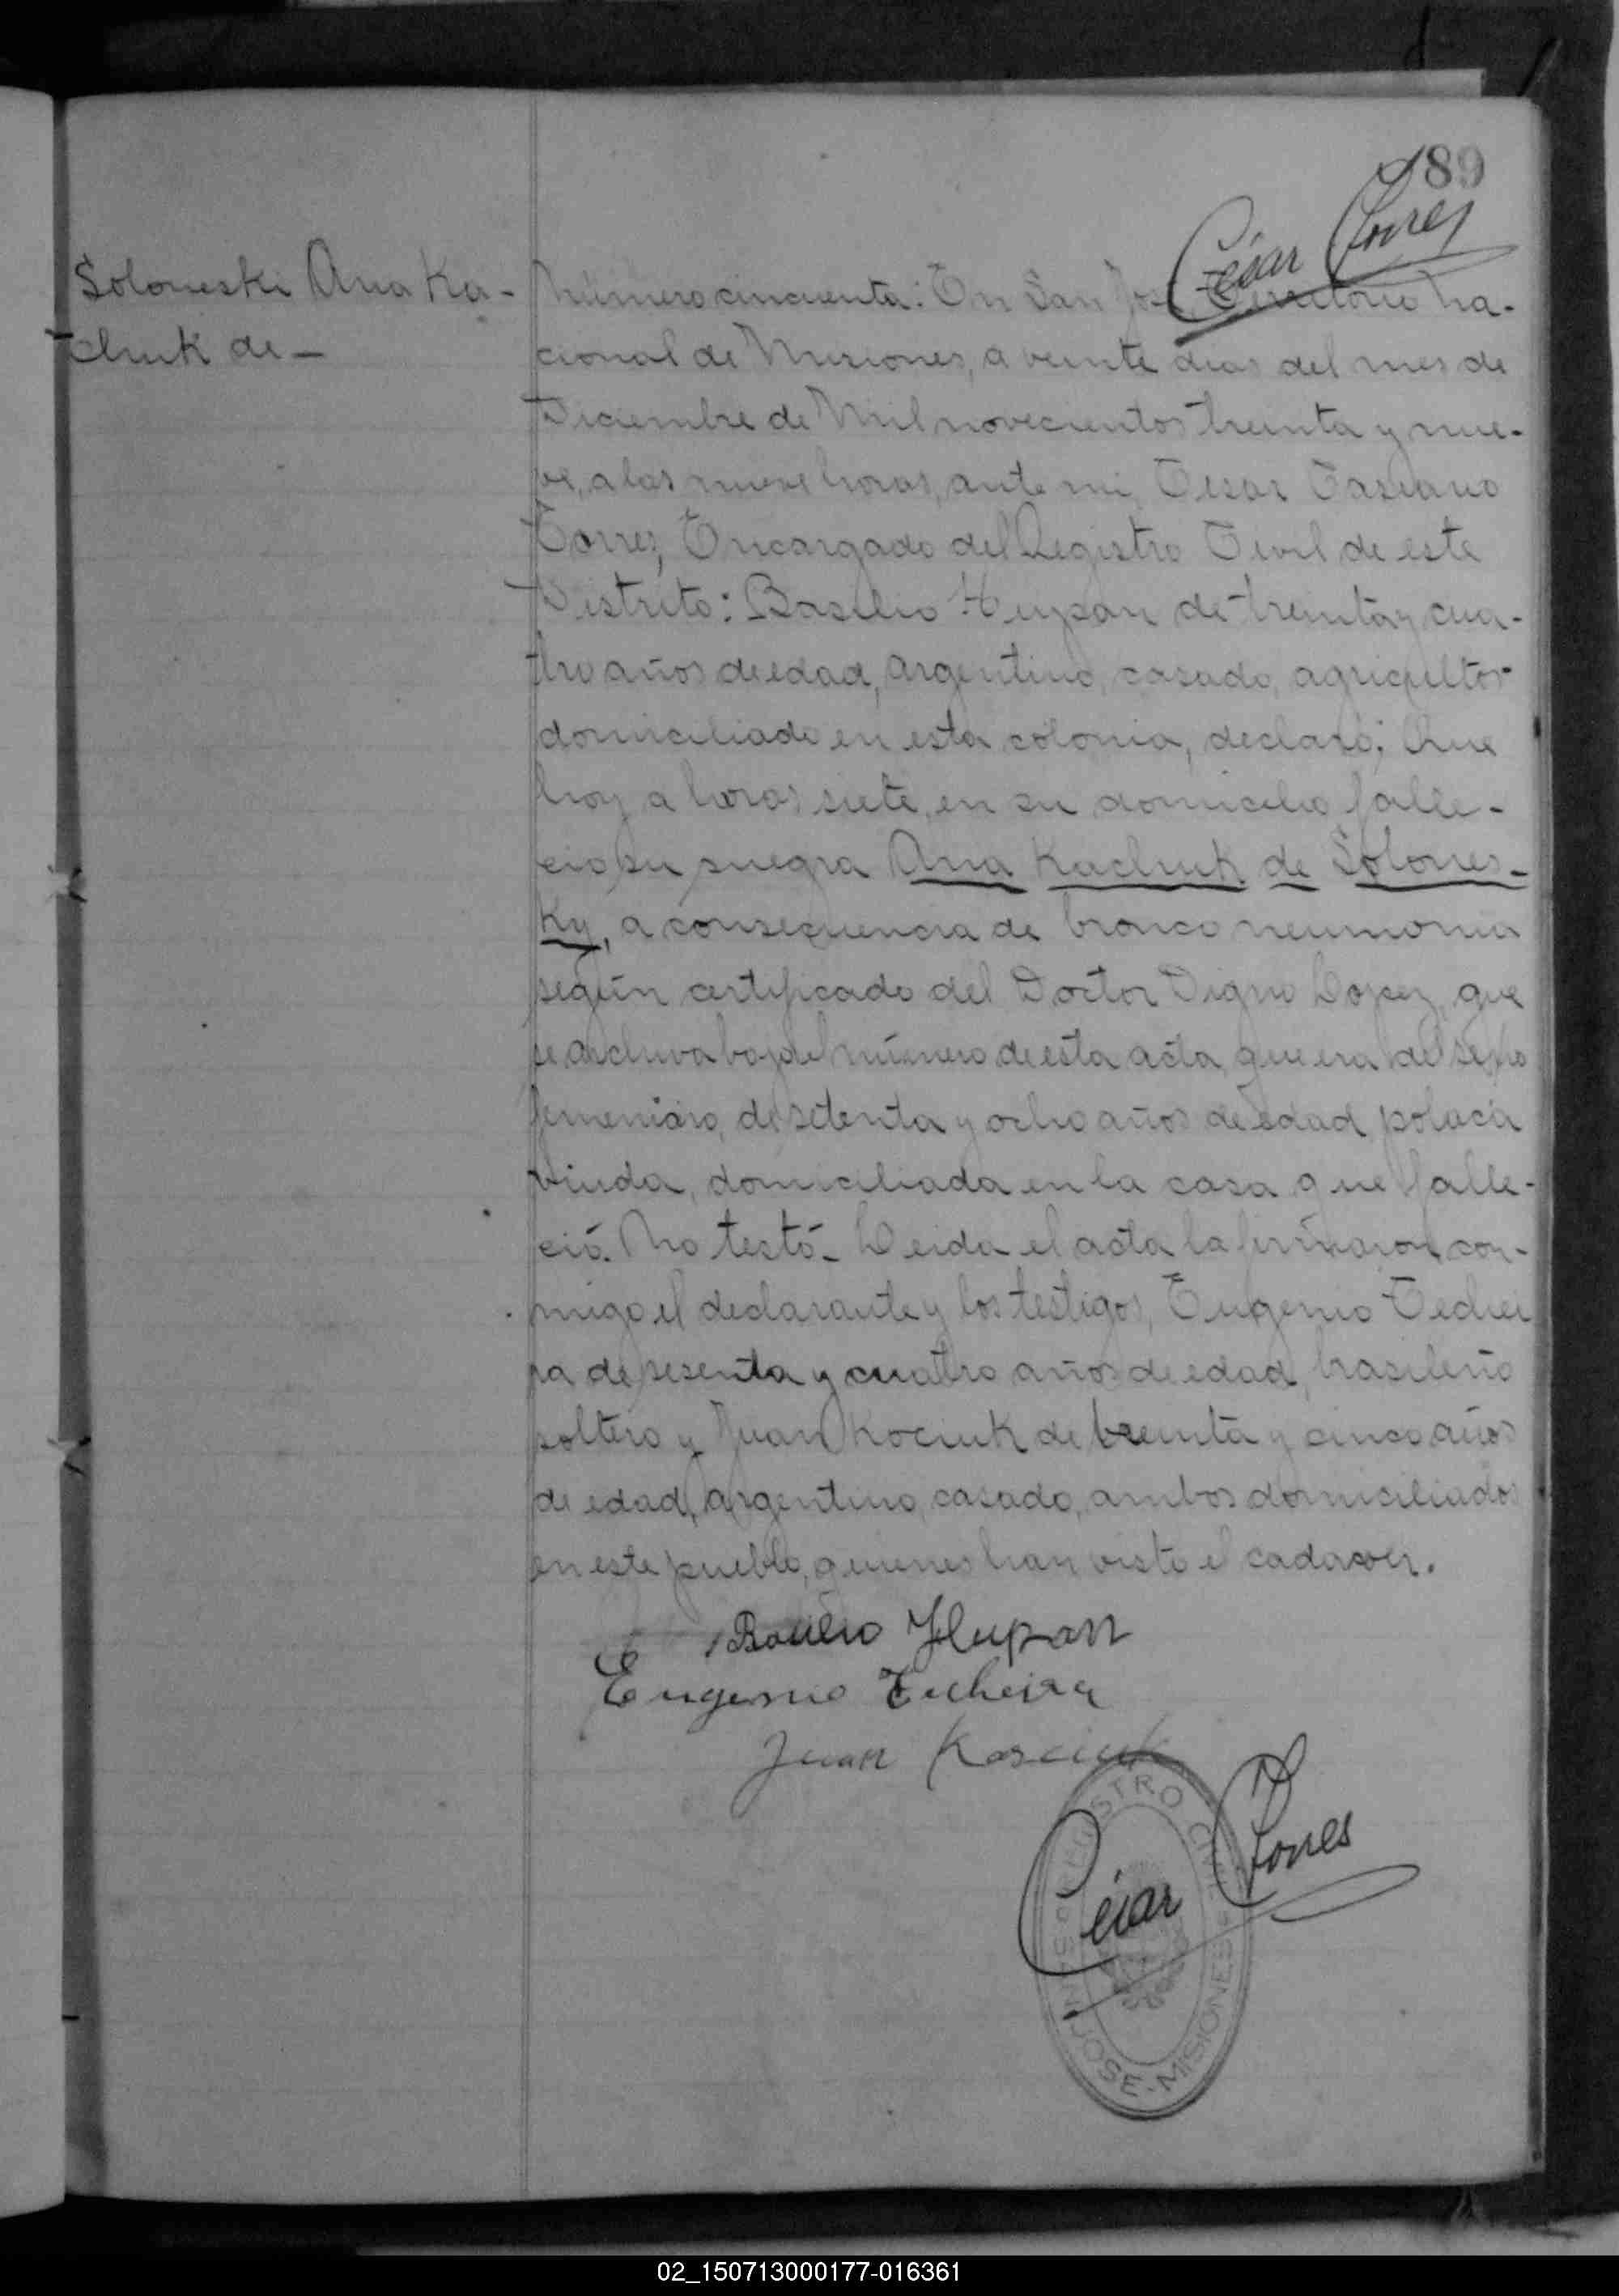 189
César Torres
Soloneski Ana Ka-
chuk de -
Número cincuenta: En San José, Territorio Na-
cional de Misiones, a veinte dias del mes de
Diciembre de Mil novecientos treinta y nue-
ve, a las nueve horas, ante mi, Cesar Casiano
Torres, Encargado del Registro Civil de este
Distrito: Basilio Hupan de treinta y cua-
tro años de edad, argentino, casado, agricultor
domiciliado en esta colonia, declaró: Que
hoy a horas siete, en su domicilio falle-
ció su suegra Ana Kachuk de Solones-
ky, a consequencia de bronco neumonia
según certificado del Doctor Digno Lopez, que
se archiva bajo el número de esta acta, que era del sexo
femenino, de setenta y ocho años de edad, polaca
viuda, domiciliada en la casa que falle-
ció. No testó. Leida el acta la firmaron con-
migo el declarante y los testigos, Eugenio Techei
ra de sesenta y cuatro años de edad, brasileño
soltero y Juan Kociuk de treinta y cinco años
de edad, argentino, casado, ambos domiciliados
en este pueblo, quienes han visto el cadaver.
Basilio Hupan
Eugenio Techeira
Juan Kosciuk
César Torres
REGISTRO CIVIL
SAN JOSE - MISIONES
02_150713000177-016361